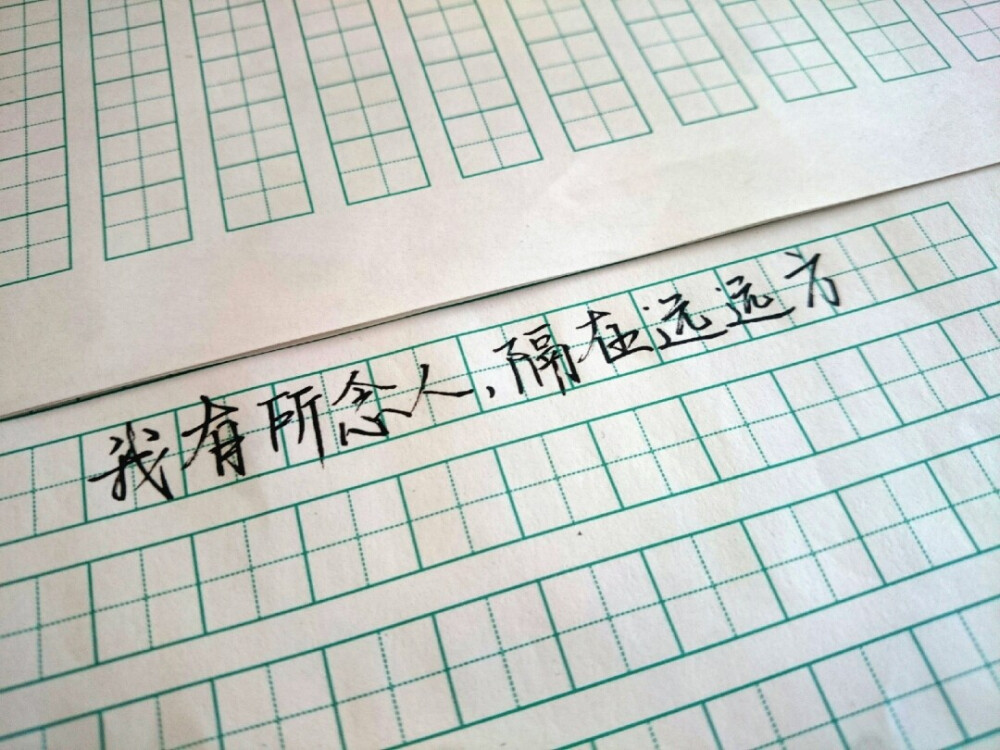 我有所念人,隔在远远方